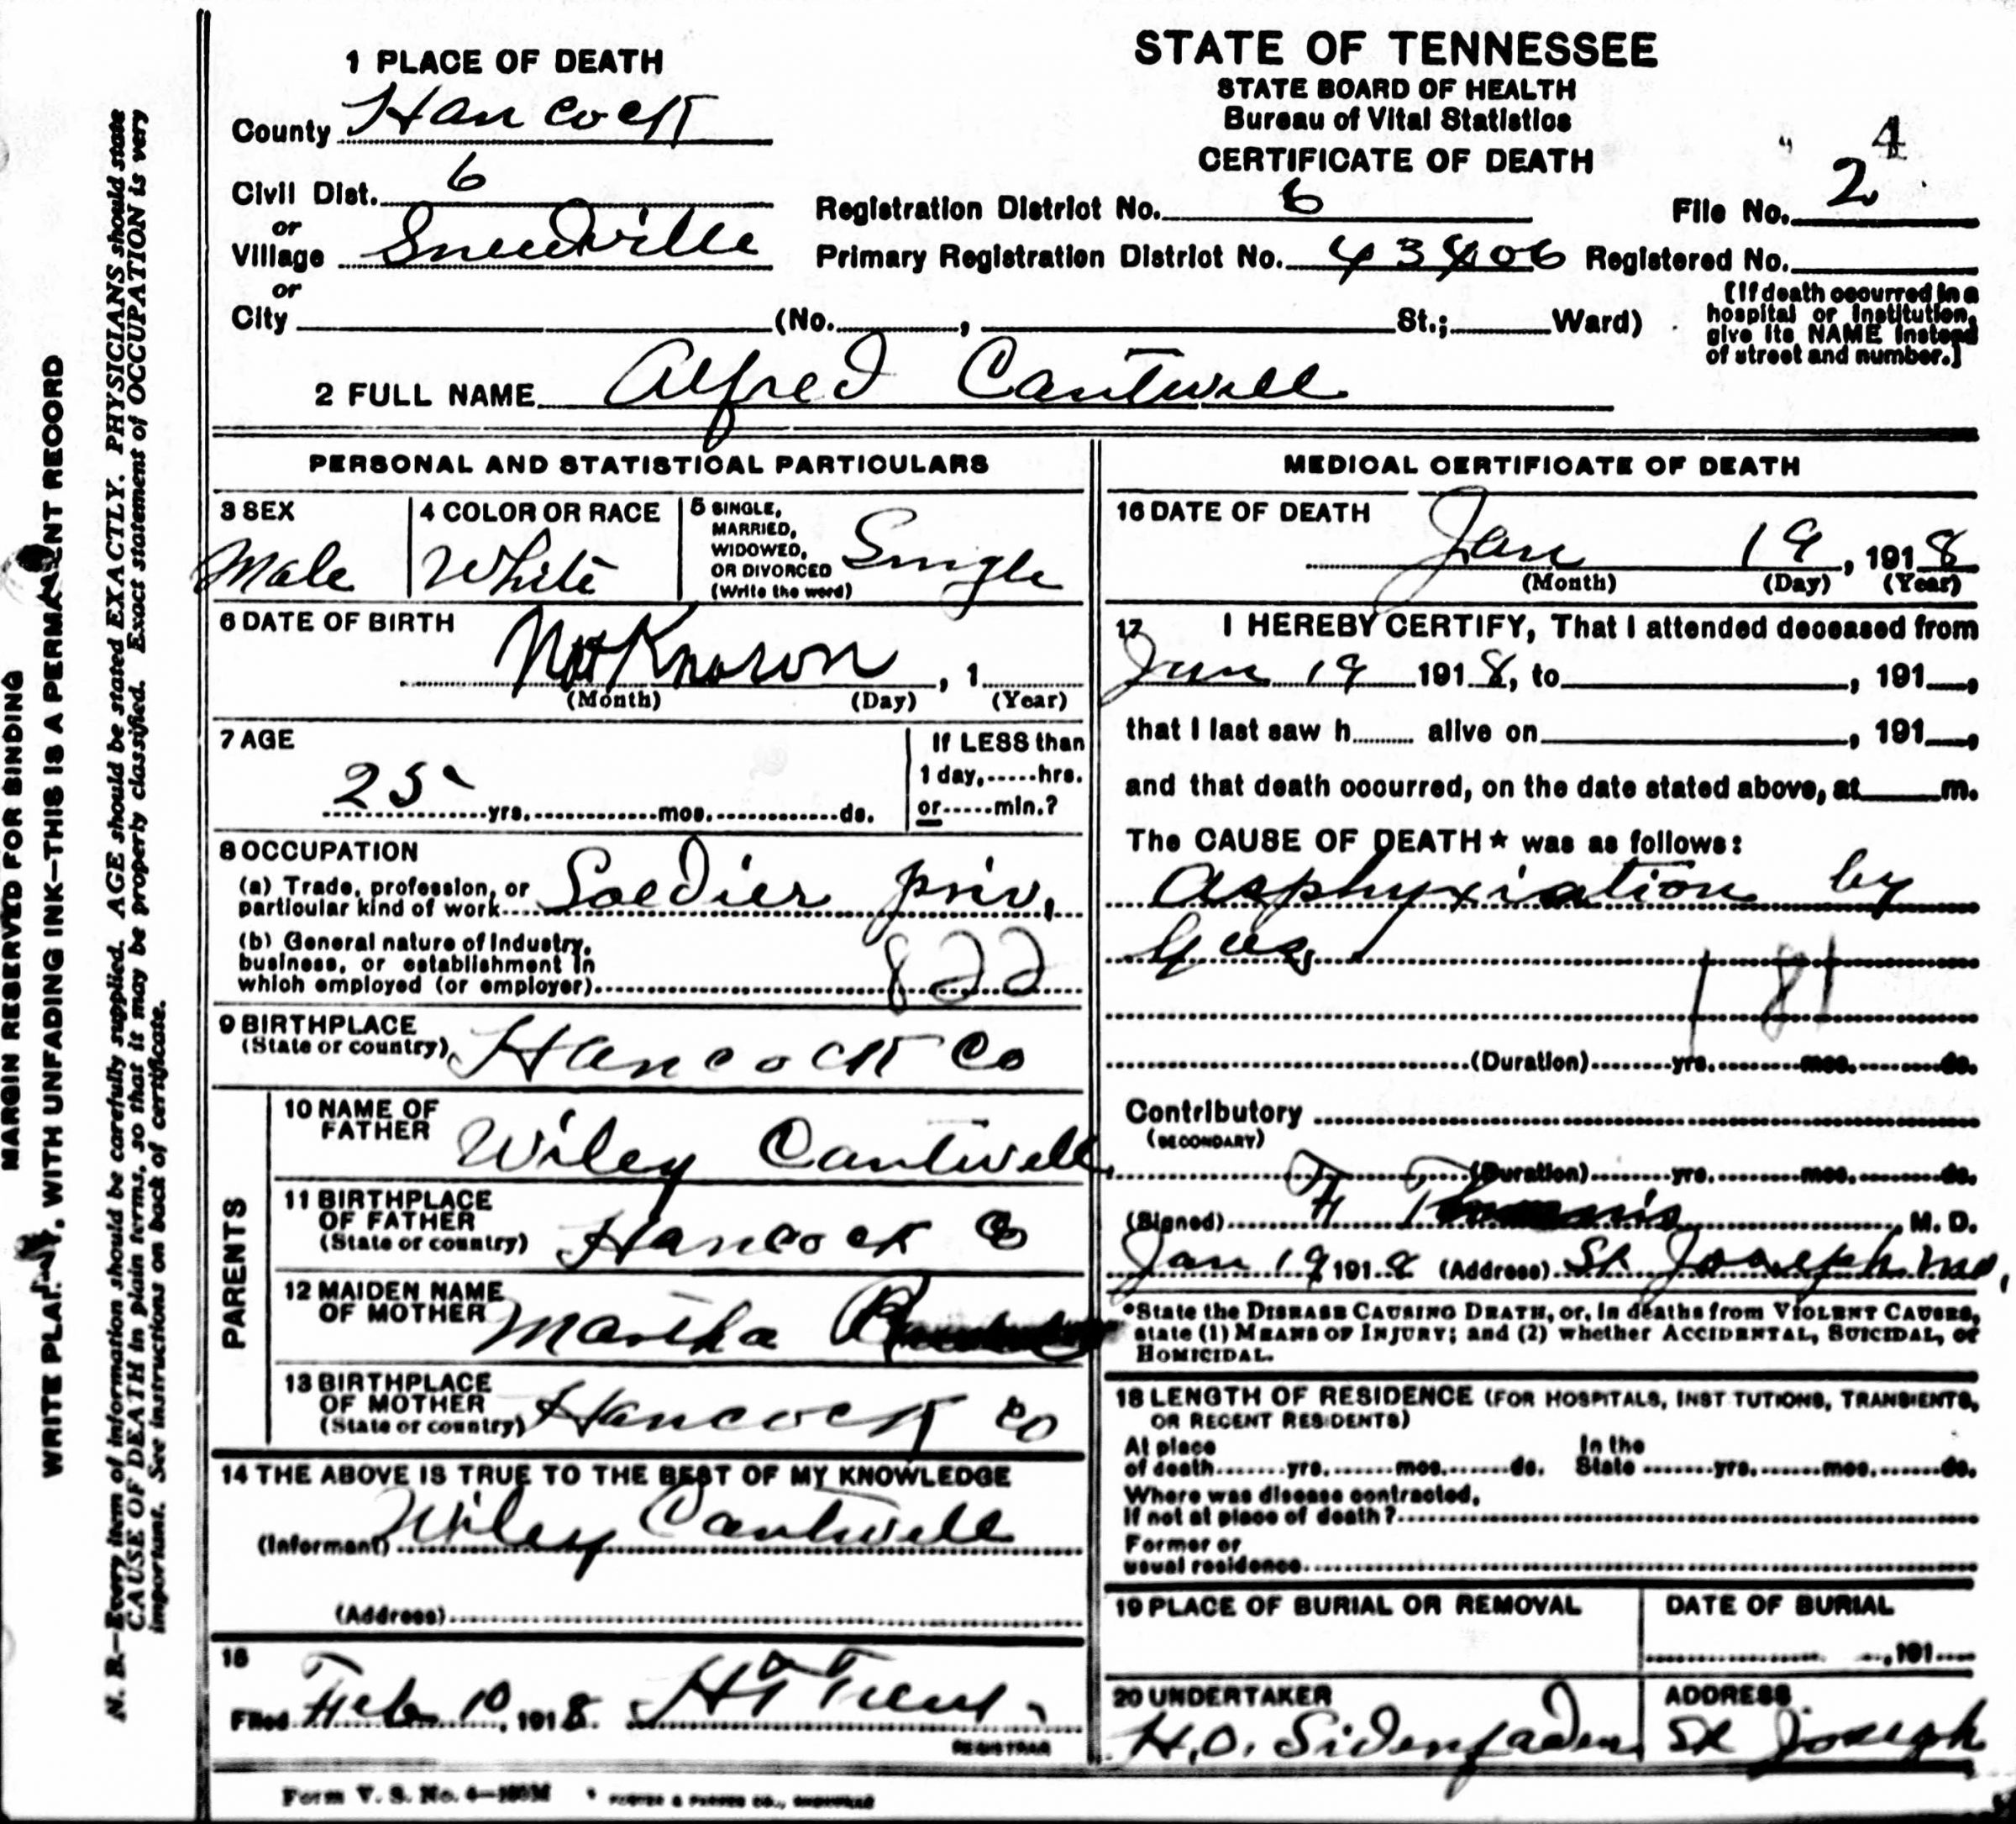 MARGIN RESERVED FOR BINDING
WRITE PLAINLY, WITH UNFADING INK—THIS IS A PERMANENT RECORD
N. B.—Every item of information should be carefully supplied. AGE should be stated EXACTLY. PHYSICIANS should state
CAUSE OF DEATH in plain terms, so that it may be properly classified. Exact statement of OCCUPATION is very
important. See instructions on back of certificate.
1 PLACE OF DEATH
County Hancock
Civil Dist. 6
or
Village Sneedville
or
City (No. , St.; Ward)
STATE OF TENNESSEE
STATE BOARD OF HEALTH
Bureau of Vital Statistics
CERTIFICATE OF DEATH
4
Registration District No. 6 File No. 2
Primary Registration District No. 43406 Registered No.
[If death occurred in a
hospital or institution,
give its NAME instead
of street and number.]
2 FULL NAME Alfred Cantwell
PERSONAL AND STATISTICAL PARTICULARS
3 SEX
Male
4 COLOR OR RACE
White
5 SINGLE,
MARRIED,
WIDOWED,
OR DIVORCED
(Write the word)
Single
6 DATE OF BIRTH
Not Known , 1
(Month) (Day) (Year)
7 AGE
25 yrs. mos. ds.
If LESS than
1 day, hrs.
or min.?
8 OCCUPATION
(a) Trade, profession, or
particular kind of work Soldier priv.
(b) General nature of Industry,
business, or establishment in
which employed (or employer) 822
9 BIRTHPLACE
(State or country) Hancock Co
PARENTS
10 NAME OF
FATHER Wiley Cantwell
11 BIRTHPLACE
OF FATHER
(State or country) Hancock Co
12 MAIDEN NAME
OF MOTHER Martha
13 BIRTHPLACE
OF MOTHER
(State or country) Hancock Co
14 THE ABOVE IS TRUE TO THE BEST OF MY KNOWLEDGE
(Informant) Wiley Cantwell
(Address)
15
Filed Feb 10, 1918. H T Trent
REGISTRAR
Form V. S. No. 4
MEDICAL CERTIFICATE OF DEATH
16 DATE OF DEATH
Jan 19, 1918
(Month) (Day) (Year)
17 I HEREBY CERTIFY, That I attended deceased from
Jan 19 1918, to , 191 ,
that I last saw h alive on , 191 ,
and that death occurred, on the date stated above, at m.
The CAUSE OF DEATH* was as follows:
Asphyxiation by
Gas
181
(Duration) yrs. mos. ds.
Contributory
(SECONDARY)
(Duration) yrs. mos. ds.
(Signed) , M. D.
Jan 19 1918 (Address) St Joseph Mo,
*State the DISEASE CAUSING DEATH, or, in deaths from VIOLENT CAUSES,
state (1) MEANS OF INJURY; and (2) whether ACCIDENTAL, SUICIDAL, or
HOMICIDAL.
18 LENGTH OF RESIDENCE (FOR HOSPITALS, INST TUTIONS, TRANSIENTS,
OR RECENT RESIDENTS)
At place
of death yrs. mos. ds.
In the
State yrs. mos. ds.
Where was disease contracted,
if not at place of death?
Former or
usual residence
19 PLACE OF BURIAL OR REMOVAL
DATE OF BURIAL
, 191
20 UNDERTAKER
H.O. Sidenfaden
ADDRESS
St Joseph